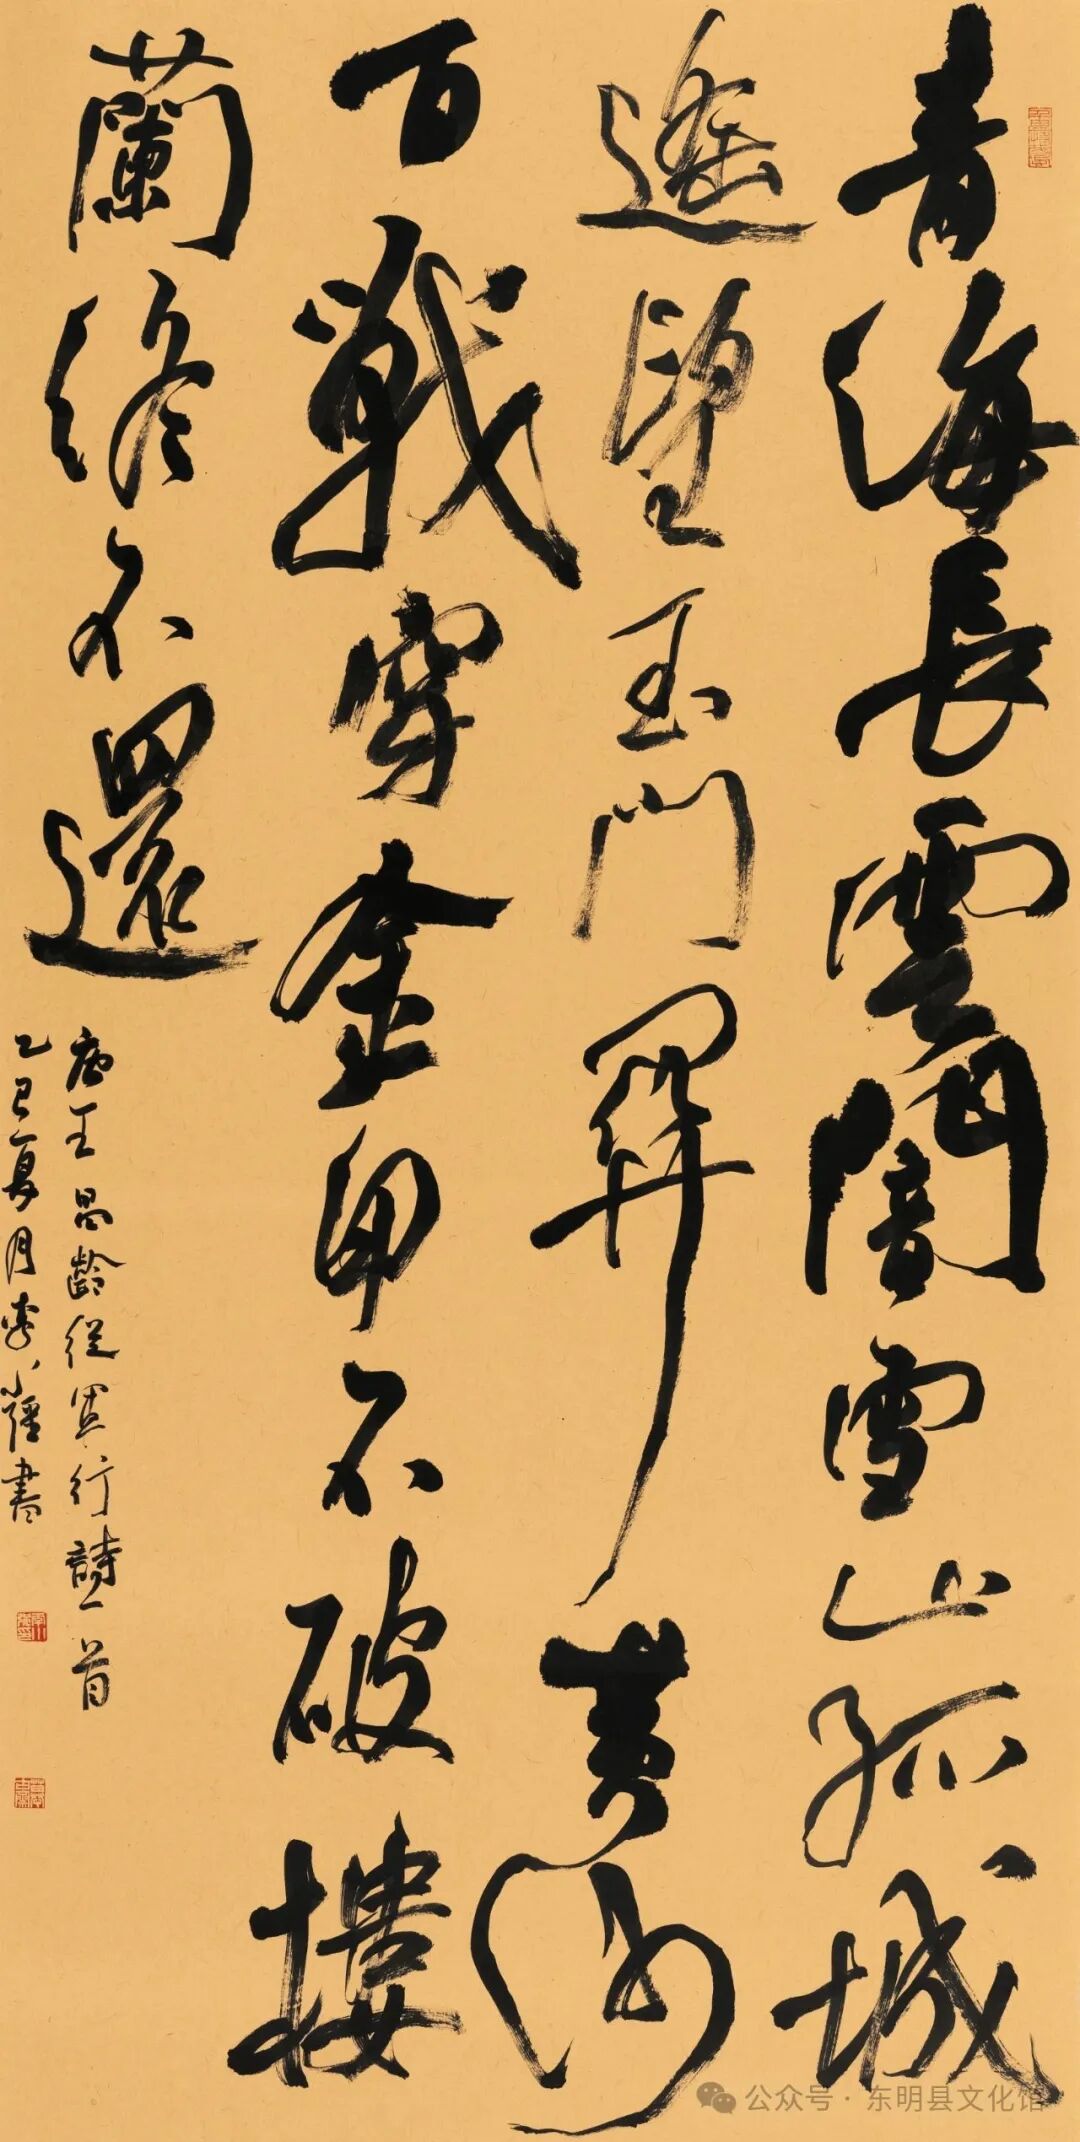 青海長雲闇雪山孤城
遙望玉門關黃沙
百戰穿金甲不破樓
蘭終不還
唐王昌齡從軍行詩一首
乙巳夏月李小書
公众号 · 东明县文化馆